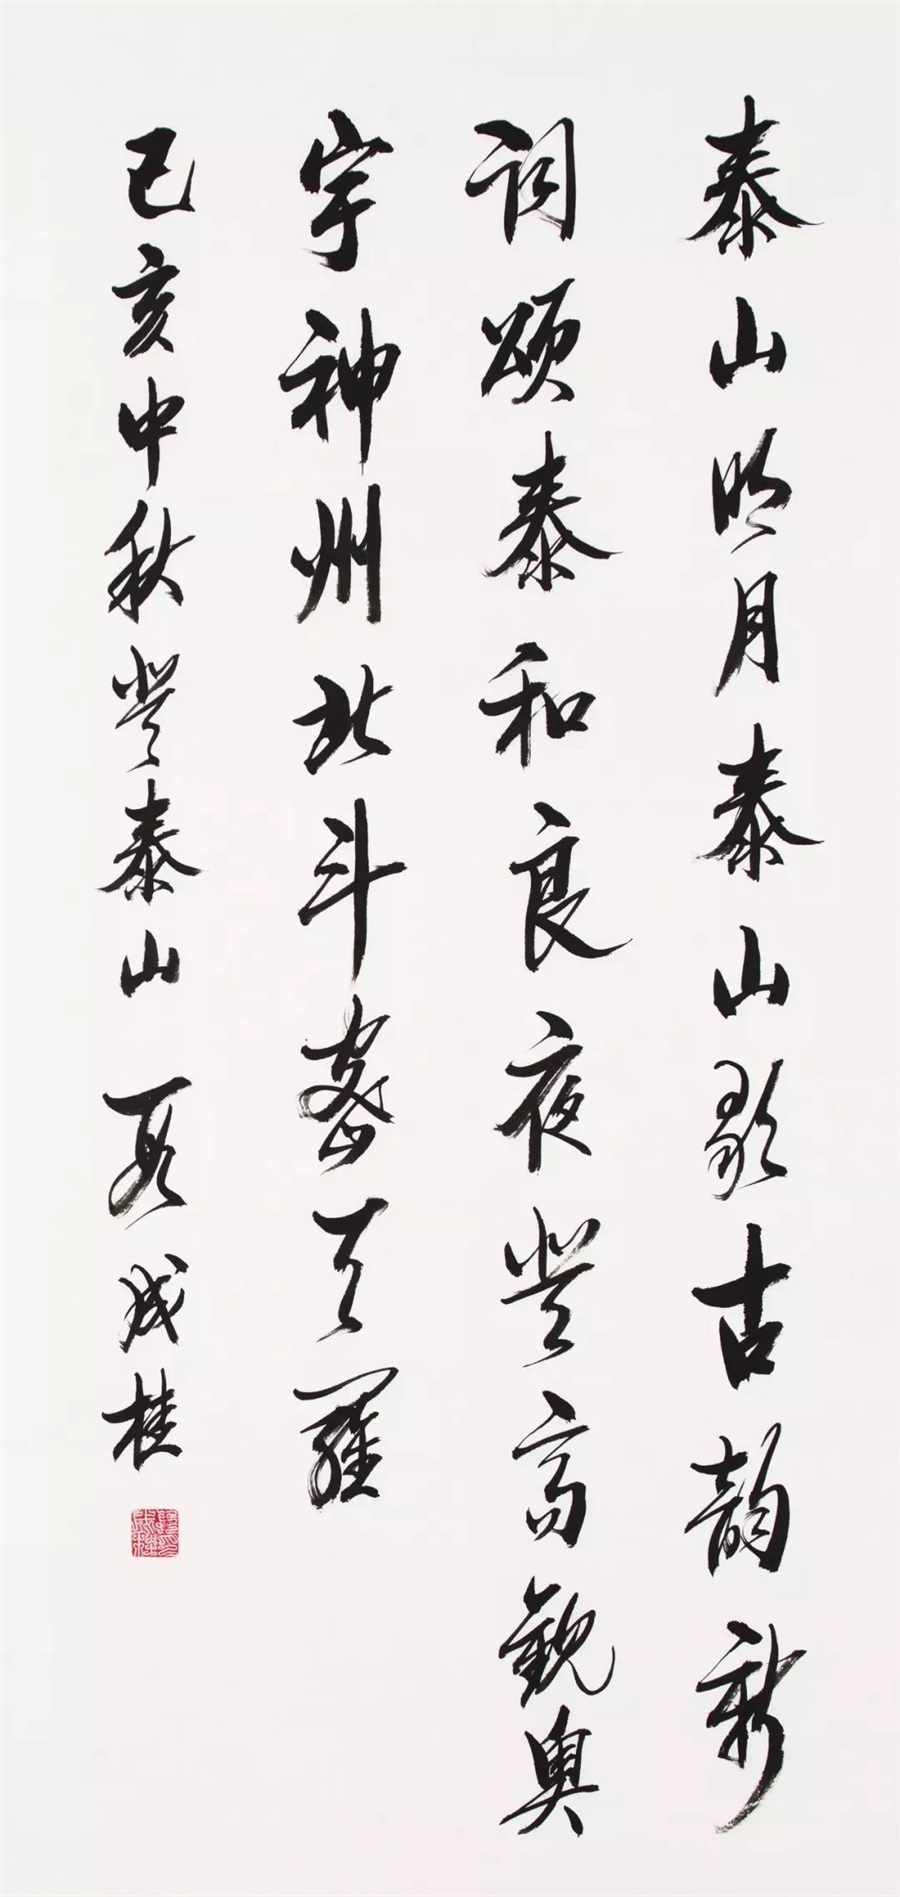 泰山明月泰山歌古韵新
词颂泰和良夜登高观奥
宇神州北斗密天罗
己亥中秋登泰山 段成桂